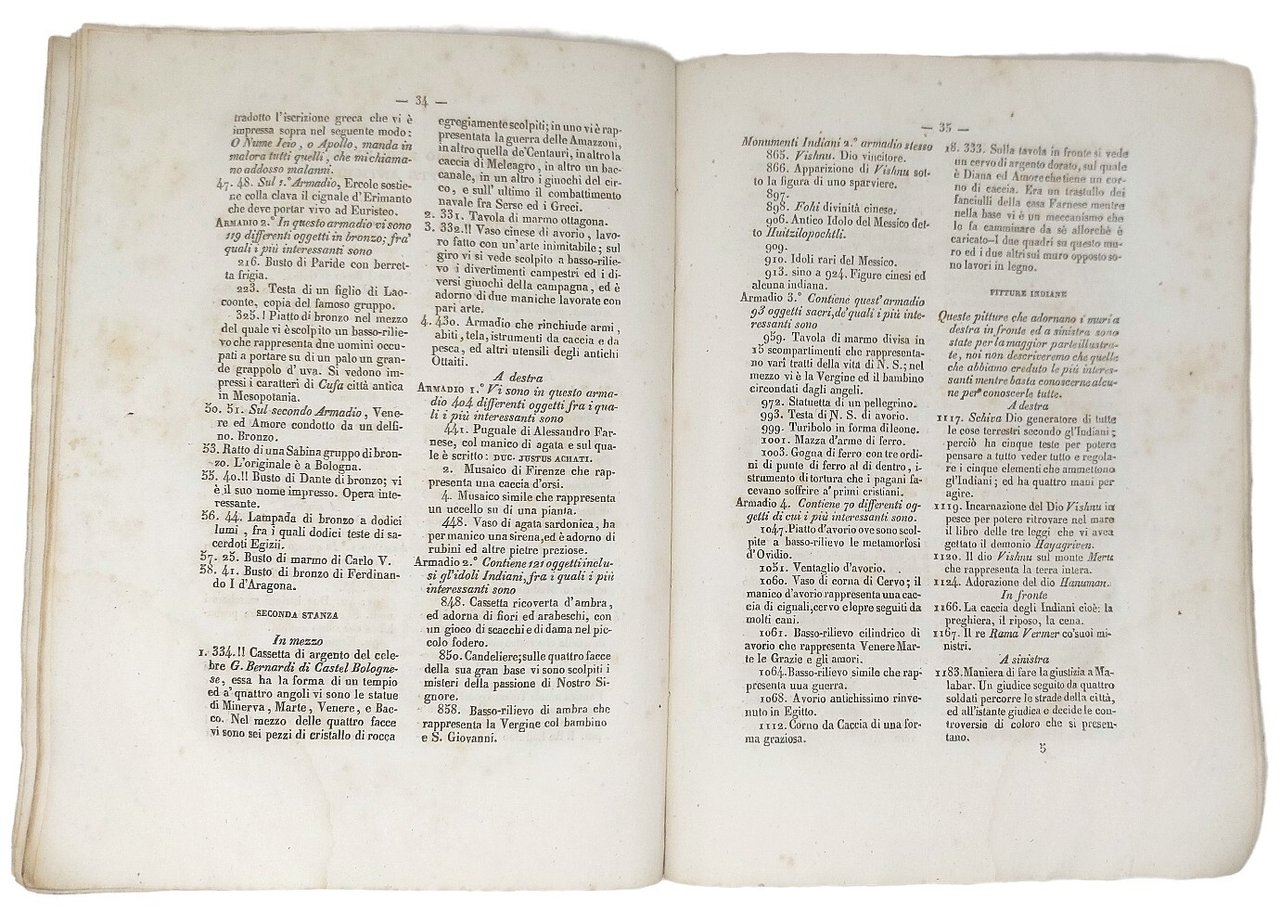 — 34 —
tradotto l'iscrizione greca che vi è
impressa sopra nel seguente modo:
O Nume Ieio, o Apollo, manda in
malora tutti quelli, che mi chiama-
no addosso malanni.
47. 48. Sul 1.° Armadio, Ercole sostie-
ne colla clava il cignale d'Erimanto
che deve portar vivo ad Euristeo.
ARMADIO 2.° In questo armadio vi sono
119 differenti oggetti in bronzo; fra'
quali i più interessanti sono
216. Busto di Paride con berret-
ta frigia.
223. Testa di un figlio di Lao-
coonte, copia del famoso gruppo.
325.! Piatto di bronzo nel mezzo
del quale vi è scolpito un basso-rilie-
vo che rappresenta due uomini occu-
pati a portare su di un palo un gran-
de grappolo d'uva. Si vedono im-
pressi i caratteri di Cufa città antica
in Mesopotania.
50. 51. Sul secondo Armadio, Vene-
re ed Amore condotto da un delfi-
no. Bronzo.
53. Ratto di una Sabina gruppo di bron-
zo. L'originale è a Bologna.
55. 40.!! Busto di Dante di bronzo; vi
è il suo nome impresso. Opera inte-
ressante.
56. 44. Lampada di bronzo a dodici
lumi, fra i quali dodici teste di sa-
cerdoti Egizii.
57. 25. Busto di marmo di Carlo V.
58. 41. Busto di bronzo di Ferdinan-
do I d'Aragona.
SECONDA STANZA
In mezzo
1. 334.!! Cassetta di argento del cele-
bre G. Bernardi di Castel Bologne-
se, essa ha la forma di un tempio
ed a' quattro angoli vi sono le statue
di Minerva, Marte, Venere, e Bac-
co. Nel mezzo delle quattro facce
vi sono sei pezzi di cristallo di rocca
egregiamente scolpiti; in uno vi è rap-
presentata la guerra delle Amazzoni,
in altro quella de'Centauri, in altro la
caccia di Meleagro, in altro un bac-
canale, in un altro i giuochi del cir-
co, e sull'ultimo il combattimento
navale fra Serse ed i Greci.
2. 331. Tavola di marmo ottagona.
3. 332.!! Vaso cinese di avorio, lavo-
ro fatto con un'arte inimitabile; sul
giro vi si vede scolpito a basso-rilie-
vo i divertimenti campestri ed i di-
versi giuochi della campagna, ed è
adorno di due maniche lavorate con
pari arte.
4. 430. Armadio che rinchiude armi,
abiti, tela, istrumenti da caccia e da
pesca, ed altri utensili degli antichi
Ottaiti.
A destra
ARMADIO 1.° Vi sono in questo arma-
dio 404 differenti oggetti fra i qua-
li i più interessanti sono
441. Pugnale di Alessandro Far-
nese, col manico di agata e sul qua-
le è scritto: DUC. JUSTUS ACHATI.
2. Musaico di Firenze che rap-
presenta una caccia d'orsi.
4. Musaico simile che rappresenta
un uccello su di una pianta.
448. Vaso di agata sardonica, ha
per manico una sirena, ed è adorno di
rubini ed altre pietre preziose.
Armadio 2.° Contiene 121 oggetti inclu-
si gl'idoli Indiani, fra i quali i più
interessanti sono
848. Cassetta ricoverta d'ambra,
ed adorna di fiori ed arabeschi, con
un gioco di scacchi e di dama nel pic-
colo fodero.
850. Candeliere; sulle quattro facce
della sua gran base vi sono scolpiti i
misteri della passione di Nostro Si-
gnore.
858. Basso-rilievo di ambra che
rappresenta la Vergine col bambino
e S. Giovanni.
— 35 —
Monumenti Indiani 2.° armadio stesso
865. Vishnu. Dio vincitore.
866. Apparizione di Vishnu sot-
to la figura di uno sparviere.
897.
898. Fohi divinità cinese.
906. Antico Idolo del Messico det-
to Huitzilopochtli.
909.
910. Idoli rari del Messico.
913. sino a 924. Figure cinesi ed
alcuna indiana.
Armadio 3.° Contiene quest'armadio
93 oggetti sacri, de'quali i più inte-
ressanti sono
959. Tavola di marmo divisa in
15 scompartimenti che rappresenta-
no vari tratti della vita di N. S.; nel
mezzo vi è la Vergine ed il bambino
circondati dagli angeli.
972. Statuetta di un pellegrino.
993. Testa di N. S. di avorio.
999. Turibolo in forma di leone.
1001. Mazza d'arme di ferro.
1003. Gogna di ferro con tre ordi-
ni di punte di ferro al di dentro, i-
strumento di tortura che i pagani fa-
cevano soffrire a' primi cristiani.
Armadio 4. Contiene 70 differenti og-
getti di cui i più interessanti sono.
1047. Piatto d'avorio ove sono scol-
pite a basso-rilievo le metamorfosi
d'Ovidio.
1051. Ventaglio d'avorio.
1060. Vaso di corna di Cervo; il
manico d'avorio rappresenta una cac-
cia di cignali, cervo e lepre seguiti da
molti cani.
1061. Basso-rilievo cilindrico di
avorio che rappresenta Venere Mar-
te le Grazie e gli amori.
1064. Basso-rilievo simile che rap-
presenta una guerra.
1068. Avorio antichissimo rinve-
nuto in Egitto.
1112. Corno da Caccia di una for-
ma graziosa.
18. 333. Sulla tavola in fronte si vede
un cervo di argento dorato, sul quale
è Diana ed Amore che tiene un cor-
no di caccia. Era un trastullo dei
fanciulli della casa Farnese mentre
nella base vi è un meccanismo che
lo fa camminare da sè allorchè è
caricato—I due quadri su questo mu-
ro ed i due altri sul muro opposto so-
no lavori in legno.
PITTURE INDIANE
Queste pitture che adornano i muri a
destra in fronte ed a sinistra sono
state per la maggior parte illustra-
te, noi non descriveremo che quelle
che abbiamo creduto le più interes-
santi mentre basta conoscerne alcu-
ne per conoscerle tutte.
A destra
1117. Schiva Dio generatore di tutte
le cose terrestri secondo gl'Indiani;
perciò ha cinque teste per potere
pensare a tutto veder tutto e regola-
re i cinque elementi che ammettono
gl'Indiani; ed ha quattro mani per
agire.
1119. Incarnazione del Dio Vishnu in
pesce per potere ritrovare nel mare
il libro delle tre leggi che vi avea
gettato il demonio Hayagriven.
1120. Il dio Vishnu sul monte Meru
che rappresenta la terra intera.
1124. Adorazione del dio Hanuman.
In fronte
1166. La caccia degli Indiani cioè: la
preghiera, il riposo, la cena.
1167. Il re Rama Vermer co'suoi mi-
nistri.
A sinistra
1183. Maniera di fare la giustizia a Ma-
labar. Un giudice seguito da quattro
soldati percorre le strade della città,
ed all'istante giudica e decide le con-
troversie di coloro che si presen-
tano.
5